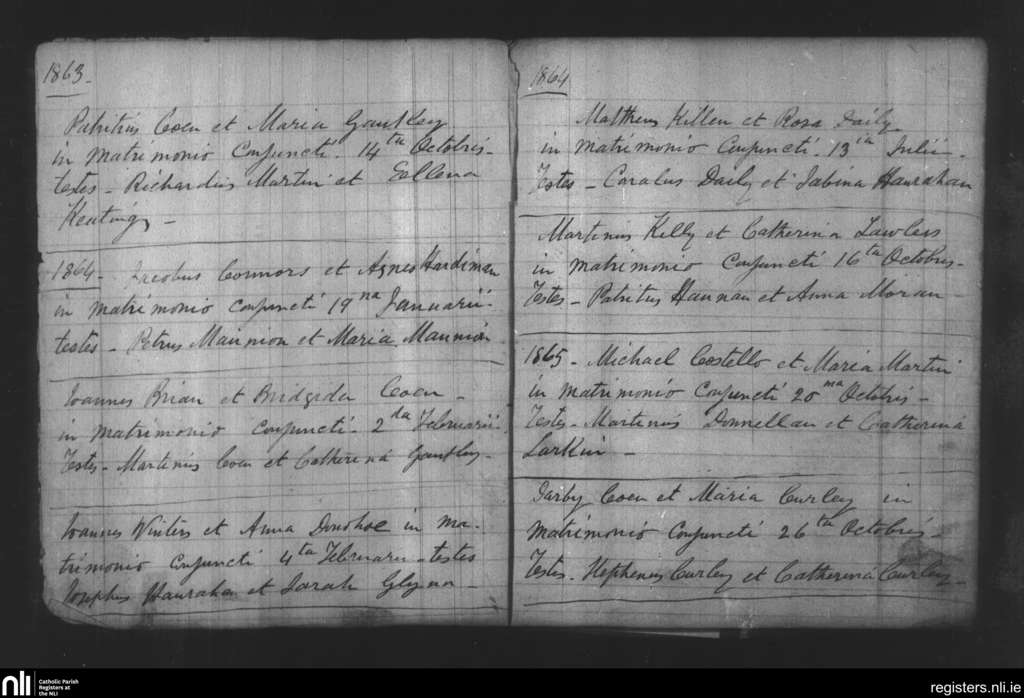 1863.
Patritius Coen et Maria Gantley
in Matrimonio Conjuncti. 14ta Octobris-
testes - Richardius Martin et Eellena
Keating -
1864- Jacobus Connors et Agnes Hardiman
in Matrimonio conjuncti 19na Januarii.
testes - Petrus Mannion et Maria Mannion
Ioannes Brian et Bridgida Coen -
in Matrimonio conjuncti - 2da Februarii.
Testes - Martinus Coen et Catherina Gantley-
Ioannes Winters et Anna Donohoe in Ma-
trimonio Conjuncti 4ta Februarii - testes
Josephus Hanrahan et Sarah Glynn -
1864
Mattheus Killen et Rosa Daily
in Matrimonio Conjuncti - 13ia Julii -
Testes - Coralus Daily et Sabina Hanrahan
Martinus Kelly et Catherina Lawless
in Matrimonio Conjuncti 16ta Octobris-
Testes - Patritus Hannan et Anna Moran -
1865 - Michael Costello et Maria Martin
in Matrimonio Conjuncti 20ma Octobris -
Testes - Martinus Donnellan et Catherina
Larkin -
Darby Coen et Maria Curley in
Matrimonio Conjuncti 26ta Octobris -
Testes - Stephenus Curley et Catherina Curley -
nli
Catholic Parish
Registers at
the NLI
registers.nli.ie